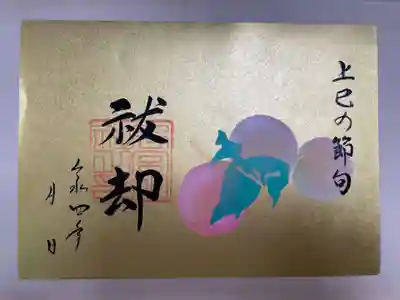 上巳の節句
祓却
令和四年
月　日